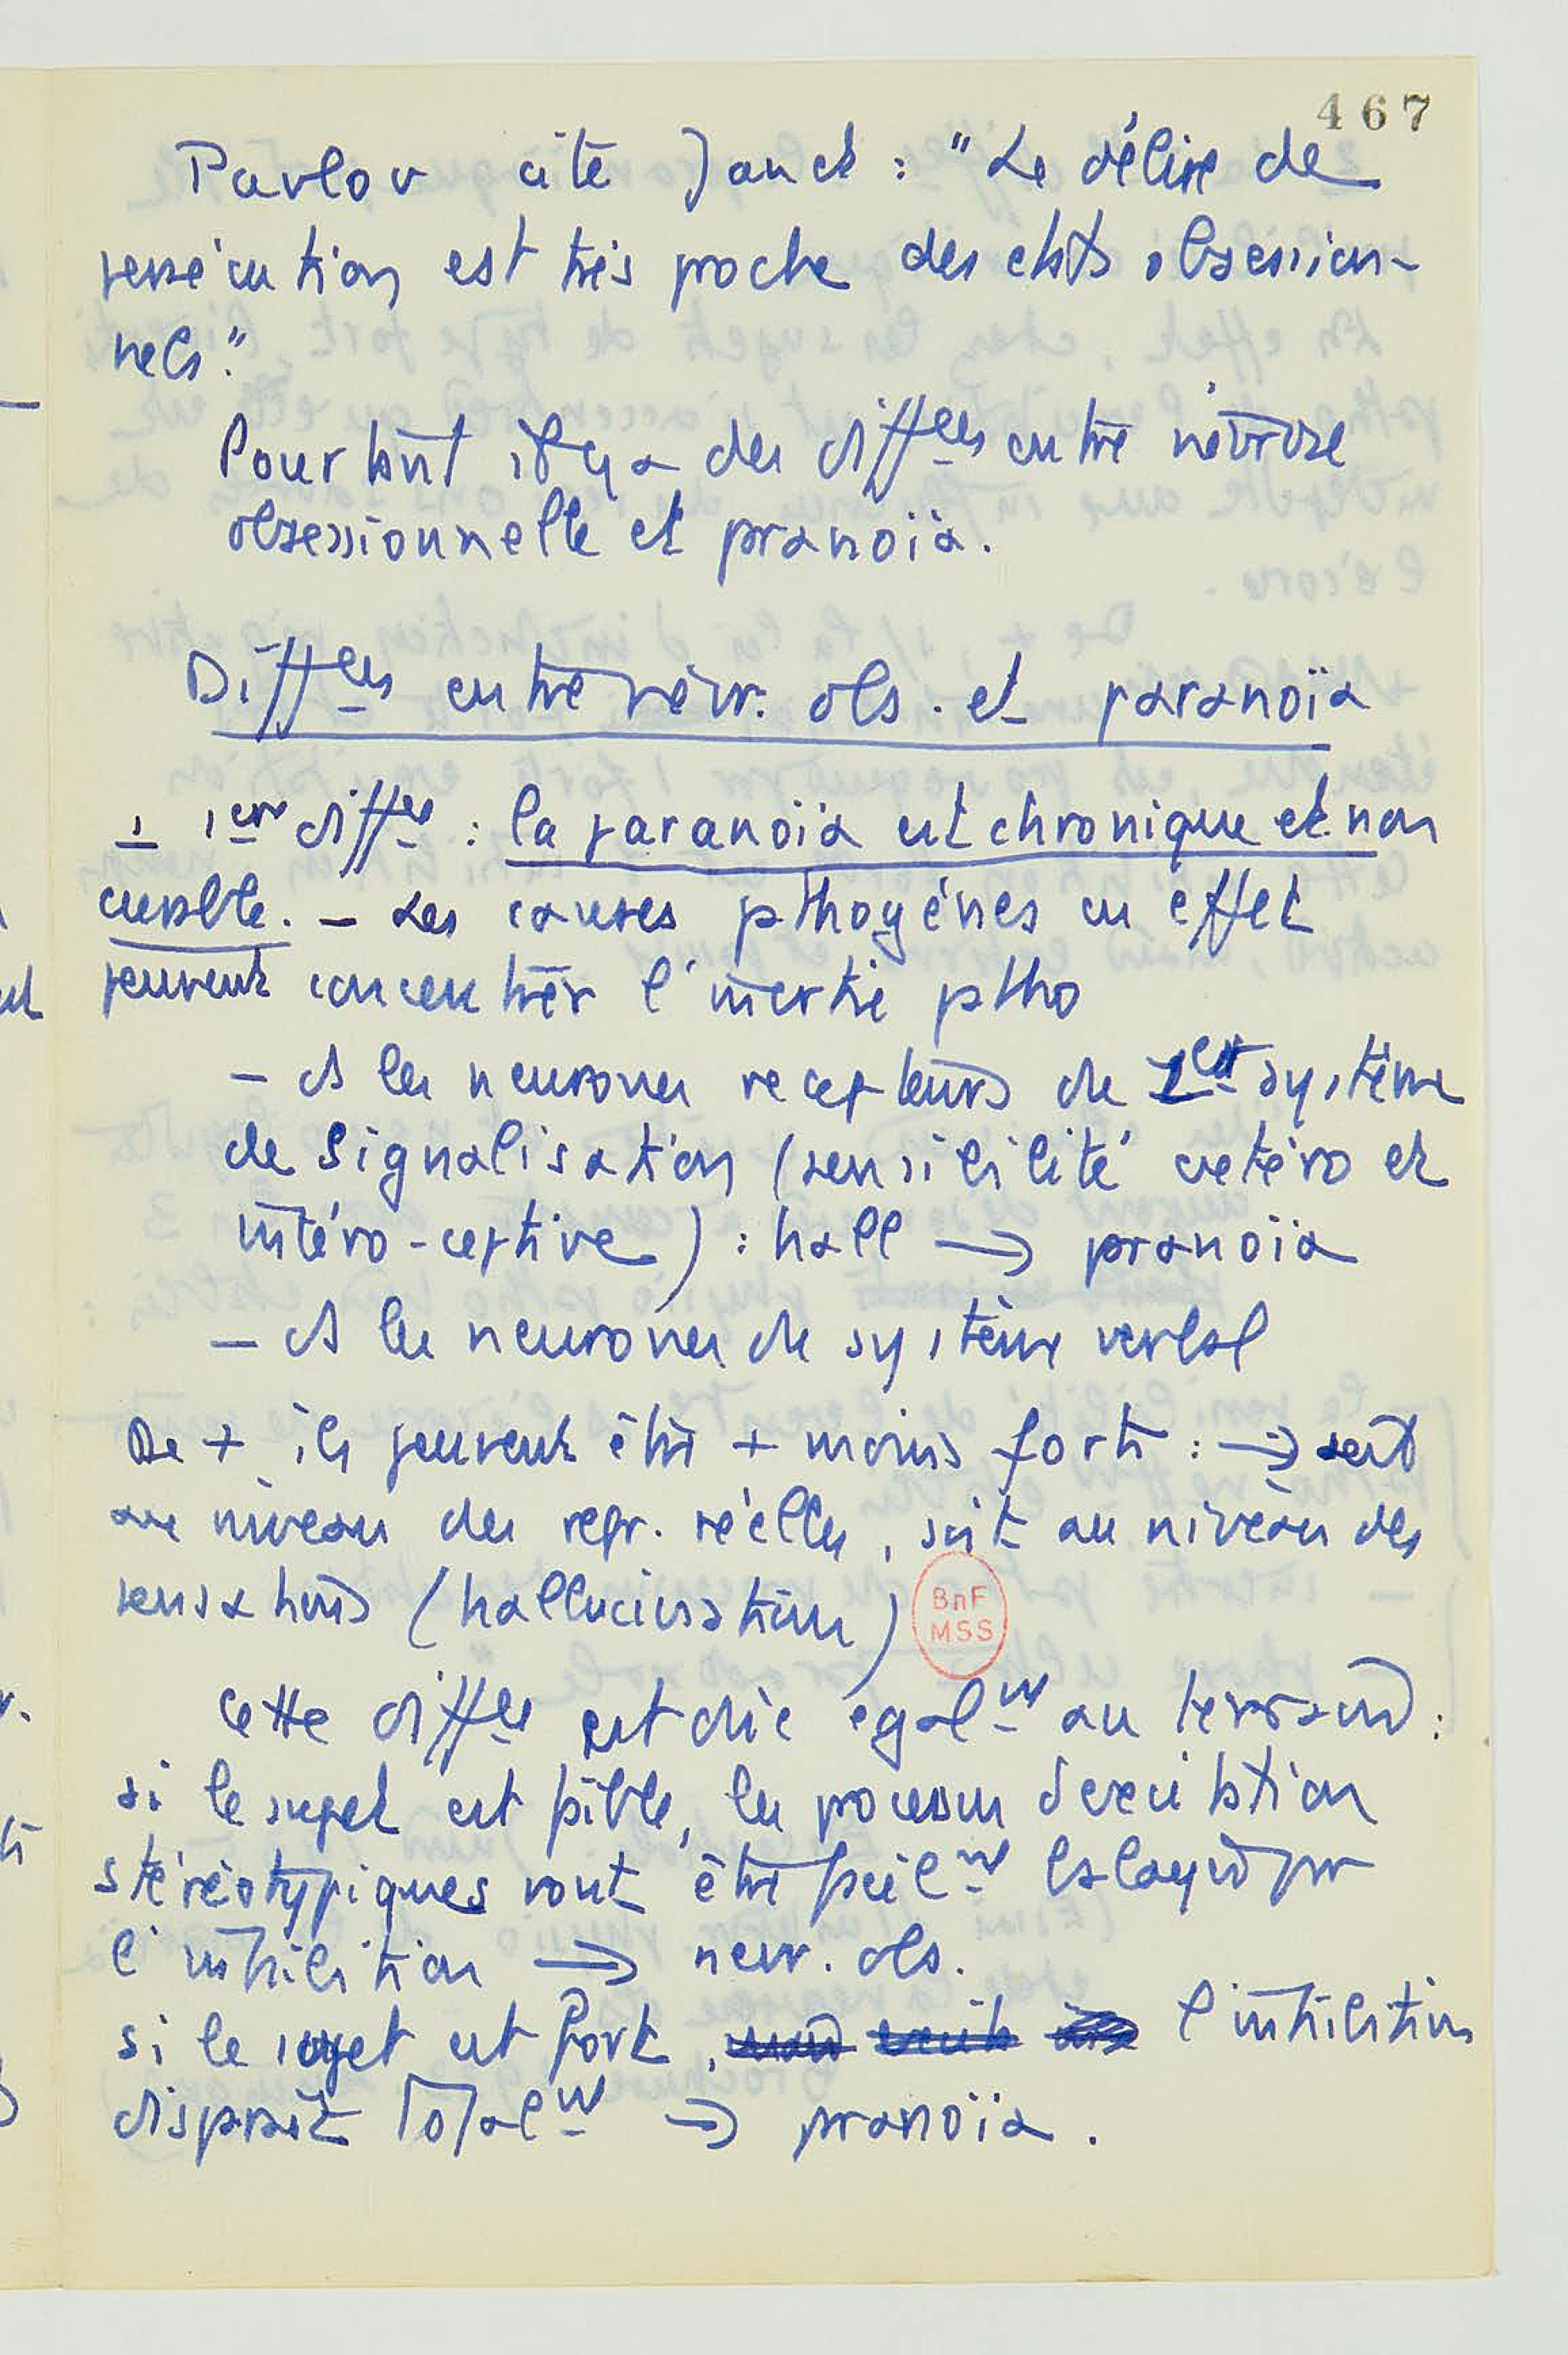 467
Pavlov cite Janet : "Le délire de
persécution est très proche des états obsession-
nels".
Pourtant il y a des diffces entre névrose
obsessionnelle et pranoïa.
Diffces entre névr. obs. et paranoïa
1 1ère diffce : la paranoïa est chronique et non
curable. - Les causes pthogènes en effet
peuvent concentrer l'inertie ptho
- ds les neurones recepteurs du 1er système
de signalisation (sensibilité extéro et
intéro-ceptive) : hall → pranoïa
- ds les neurones du système verbal
De + ils peuvent être + moins forts : → soit
au niveau des repr. réelles, soit au niveau des
sensations (hallucination)
BnF
MSS
Cette diffce est due égalmt au terrain :
si le sujet est faible, les processus d'excitation
stéréotypiques vont être facilmt balayés pr
l'inhibition → nevr. obs.
si le sujet est fort, l'inhibition
disparaît totalmt → pranoïa.